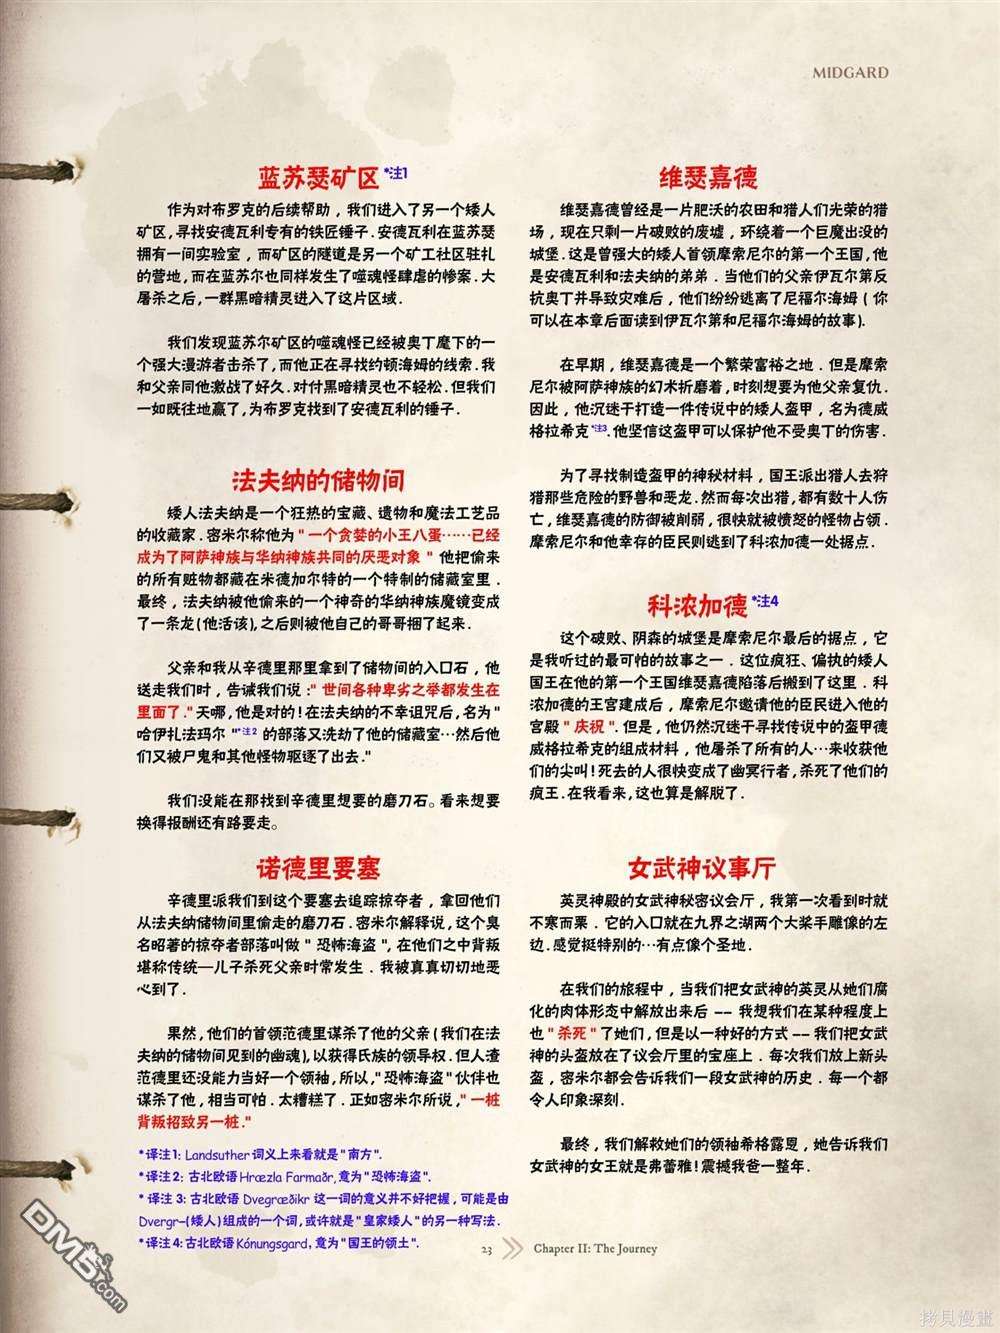 MIDGARD
蓝苏瑟矿区*注1
作为对布罗克的后续帮助，我们进入了另一个矮人
矿区,寻找安德瓦利专有的铁匠锤子.安德瓦利在蓝苏瑟
拥有一间实验室，而矿区的隧道是另一个矿工社区驻扎
的营地,而在蓝苏尔也同样发生了噬魂怪肆虐的惨案.大
屠杀之后,一群黑暗精灵进入了这片区域.
我们发现蓝苏尔矿区的噬魂怪已经被奥丁麾下的一
个强大漫游者击杀了,而他正在寻找约顿海姆的线索.我
和父亲同他激战了好久.对付黑暗精灵也不轻松.但我们
一如既往地赢了,为布罗克找到了安德瓦利的锤子.
法夫纳的储物间
矮人法夫纳是一个狂热的宝藏、遗物和魔法工艺品
的收藏家.密米尔称他为"一个贪婪的小王八蛋……已经
成为了阿萨神族与华纳神族共同的厌恶对象" 他把偷来
的所有赃物都藏在米德加尔特的一个特制的储藏室里.
最终，法夫纳被他偷来的一个神奇的华纳神族魔镜变成
了一条龙(他活该),之后则被他自己的哥哥捆了起来.
父亲和我从辛德里那里拿到了储物间的入口石，他
送走我们时，告诫我们说:"世间各种卑劣之举都发生在
里面了."天哪,他是对的!在法夫纳的不幸诅咒后,名为"
哈伊扎法玛尔"*注2 的部落又洗劫了他的储藏室…然后他
们又被尸鬼和其他怪物驱逐了出去."
我们没能在那找到辛德里想要的磨刀石。看来想要
换得报酬还有路要走。
诺德里要塞
辛德里派我们到这个要塞去追踪掠夺者，拿回他们
从法夫纳储物间里偷走的磨刀石.密米尔解释说,这个臭
名昭著的掠夺者部落叫做"恐怖海盗",在他们之中背叛
堪称传统—儿子杀死父亲时常发生.我被真真切切地恶
心到了.
果然,他们的首领范德里谋杀了他的父亲(我们在法
夫纳的储物间见到的幽魂),以获得氏族的领导权.但人渣
范德里还没能力当好一个领袖,所以,"恐怖海盗"伙伴也
谋杀了他,相当可怕.太糟糕了.正如密米尔所说,"一桩
背叛招致另一桩."
*译注1: Landsuther 词义上来看就是"南方".
*译注2: 古北欧语 Hræzla Farmaðr,意为"恐怖海盗".
*译注 3: 古北欧语 Dvegræðikr 这一词的意义并不好把握，可能是由
Dvergr-(矮人)组成的一个词,或许就是"皇家矮人"的另一种写法.
*译注4:古北欧语 Kónungsgard，意为"国王的领土".
维瑟嘉德
维瑟嘉德曾经是一片肥沃的农田和猎人们光荣的猎
场，现在只剩一片破败的废墟，环绕着一个巨魔出没的
城堡.这是曾强大的矮人首领摩索尼尔的第一个王国,他
是安德瓦利和法夫纳的弟弟.当他们的父亲伊瓦尔第反
抗奥丁并导致灾难后，他们纷纷逃离了尼福尔海姆(你
可以在本章后面读到伊瓦尔第和尼福尔海姆的故事).
在早期，维瑟嘉德是一个繁荣富裕之地.但是摩索
尼尔被阿萨神族的幻术折磨着,时刻想要为他父亲复仇.
因此，他沉迷于打造一件传说中的矮人盔甲，名为德威
格拉希克*注3.他坚信这盔甲可以保护他不受奥丁的伤害.
为了寻找制造盔甲的神秘材料，国王派出猎人去狩
猎那些危险的野兽和恶龙.然而每次出猎,都有数十人伤
亡,维瑟嘉德的防御被削弱,很快就被愤怒的怪物占领.
摩索尼尔和他幸存的臣民则逃到了科浓加德一处据点.
科浓加德*注4
这个破败、阴森的城堡是摩索尼尔最后的据点，它
是我听过的最可怕的故事之一.这位疯狂、偏执的矮人
国王在他的第一个王国维瑟嘉德陷落后搬到了这里.科
浓加德的王宫建成后，摩索尼尔邀请他的臣民进入他的
宫殿"庆祝".但是，他仍然沉迷于寻找传说中的盔甲德
威格拉希克的组成材料，他屠杀了所有的人…来收获他
们的尖叫!死去的人很快变成了幽冥行者,杀死了他们的
疯王.在我看来,这也算是解脱了.
女武神议事厅
英灵神殿的女武神秘密议会厅，我第一次看到时就
不寒而栗.它的入口就在九界之湖两个大桨手雕像的左
边.感觉挺特别的…有点像个圣地.
在我们的旅程中，当我们把女武神的英灵从她们腐
化的肉体形态中解放出来后 -- 我想我们在某种程度上
也"杀死"了她们,但是以一种好的方式--我们把女武
神的头盔放在了议会厅里的宝座上.每次我们放上新头
盔，密米尔都会告诉我们一段女武神的历史.每一个都
令人印象深刻.
最终，我们解救她们的领袖希格露恩,她告诉我们
女武神的女王就是弗蕾雅!震撼我爸一整年.
23 Chapter II: The Journey
DM5.com
拷貝漫畫